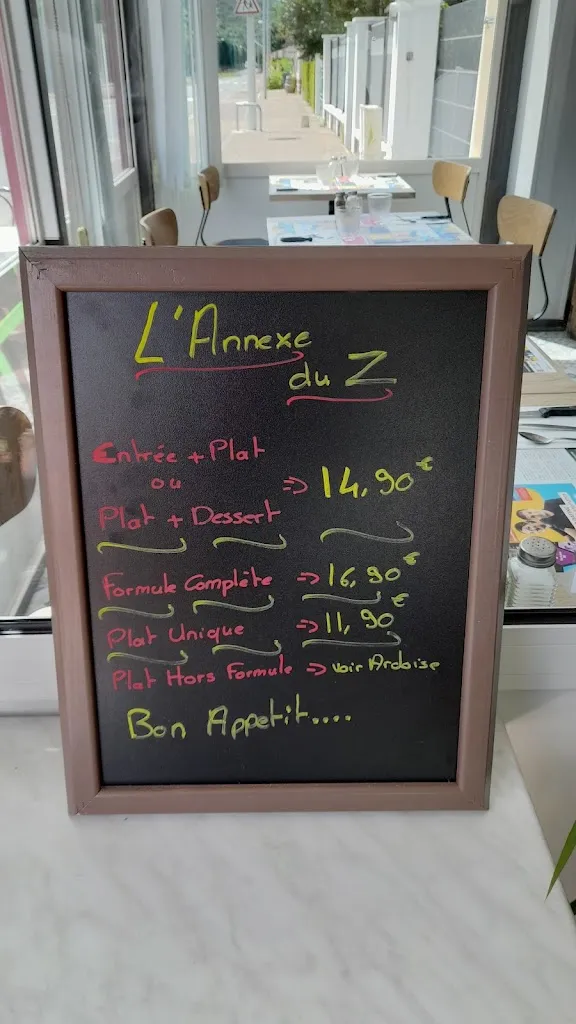 L'Annexe
du Z
Entrée + Plat
ou => 14,90€
Plat + Dessert
Formule Complète => 16,90€
Plat Unique => 11,90€
Plat Hors Formule => voir Ardoise
Bon Appetit....